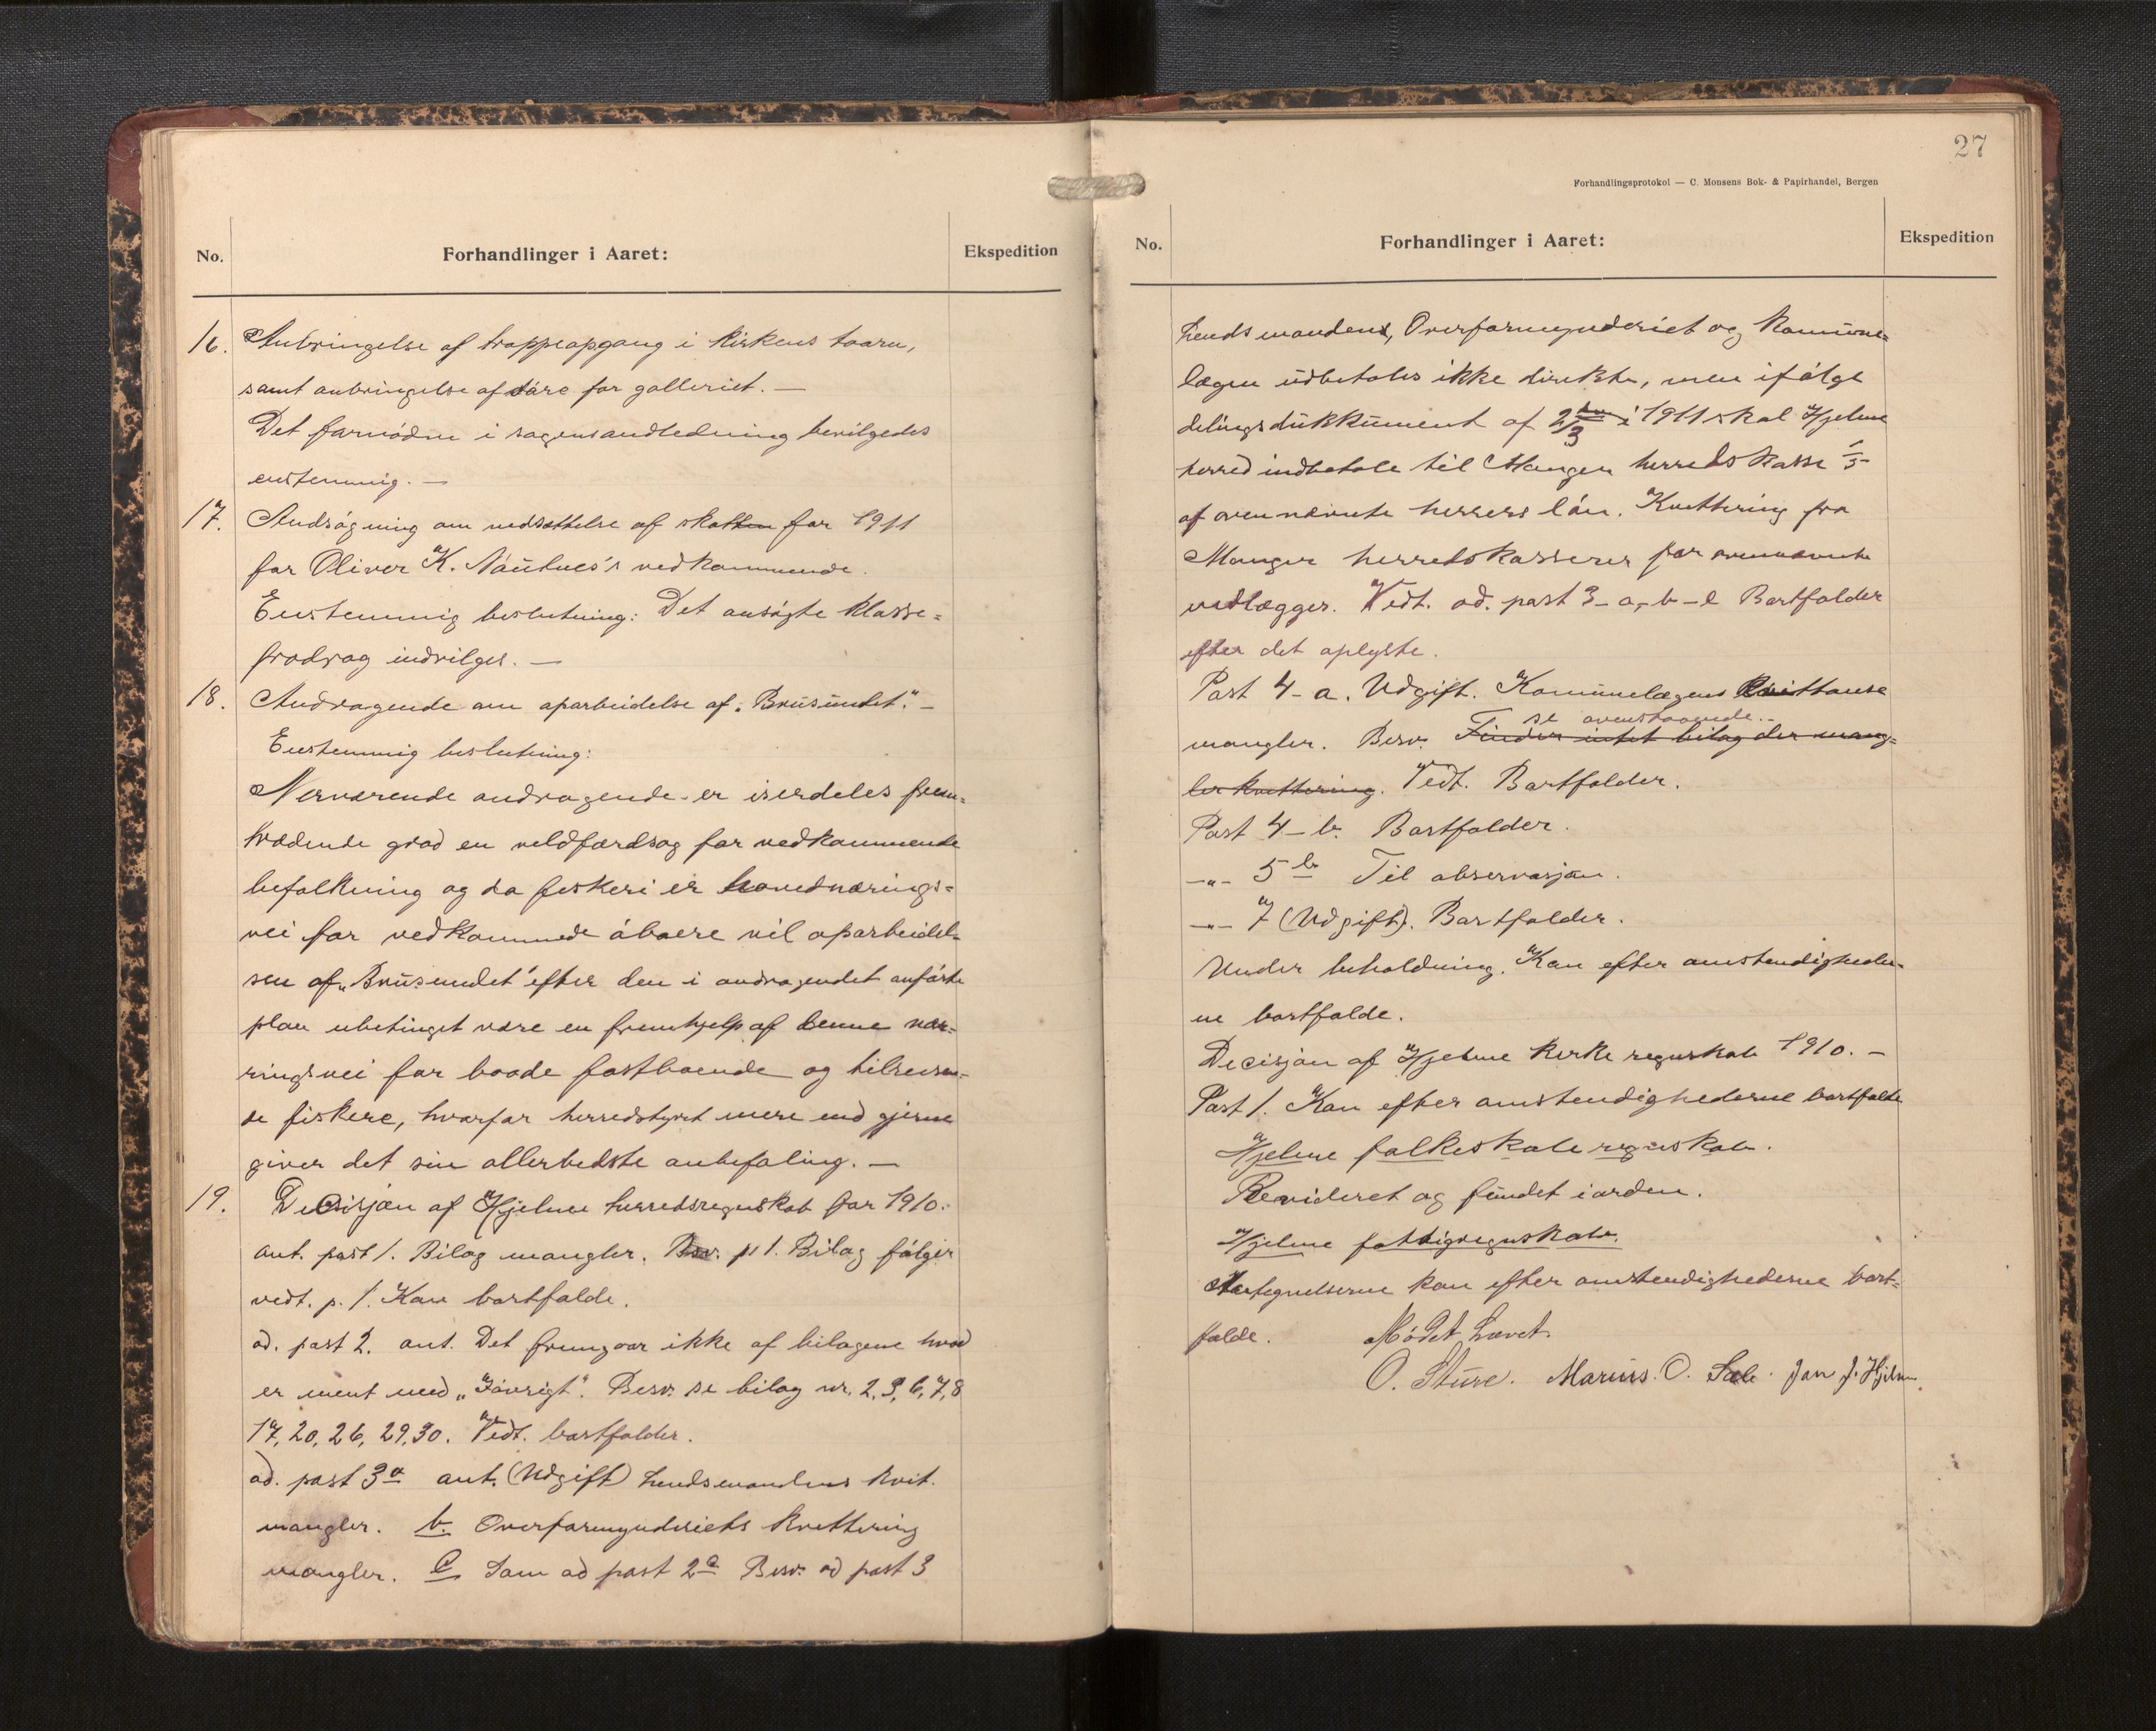 No.
Forhandlinger i Aaret:
Ekspedition
16. Anbringelse af trappeopgang i kirkens taarn,
samt anbringelse af døre for galleriet. —
Det fornødne i sagens andledning bevilgedes
enstemmig. —
17. Andsøgning om nedsættelse af skatten for 1911
for Oliver K. Nautnes's vedkommende.
Enstemmig beslutning: Det ansøgte klasse=
fradrag indvilges. —
18. Andragende om oparbeidelse af „Brusundet." —
Enstemmig beslutning:
Nerværende andragende er iserdeles frem=
trædende grad en veldfærdsag for vedkommende
befolkning og da fiskeri er hovednærings=
vei for vedkommende åboere vil oparbeidel=
sen af „Brusundet" efter den i andragendet anførte
plan ubetinget være en fremhjelp af denne nær=
ringsvei for baade fastboende og tilreisen=
de fiskere, hvorfor herredstyret mere end gjerne
giver det sin allerbedste anbefaling. —
19. Decisjon af Hjelme herredsregnskab for 1910.
ant. post 1. Bilag mangler. Besv. p 1. Bilag følger
vedt. p. 1. Kan bortfalde.
ad. post 2. ant. Det fremgaar ikke af bilagene hvad
er ment med „Iøvrigt". Besv. se bilag nr. 2, 3, 6, 7, 8
17, 20, 26, 29, 30. Vedt. bortfalder.
ad. post 3a ant. (Udgift) Lendsmandens kvit.
mangler. b. Overformynderiets kvittering
mangler. c Som ad post 2a Besv. ad post 3
27
Forhandlingsprotokol — C. Monsens Bok- & Papirhandel, Bergen
No.
Forhandlinger i Aaret:
Ekspedition
Lendsmandens, Overformynderiet og Kommune=
lægen udbetales ikke direkte, men ifølge
delingsdukkument af 1911 skal Hjelme
herred indbetale til Manger herredskasse 1/5
af ovennævnte herrers løn. Kvittering fra
Manger herredskasserer for ovennævnte
vedlægges. Vedt. ad. post 3-a,-b-c Bortfalder
efter det oplyste.
Post 4-a. Udgift. Kommunelægens Kvittanse
se ovenstaaende.
mangler. Besv. Finder intet bilag der mang=
ler kvittering. Vedt. Bortfalder.
Post 4-b. Bortfalder.
—„— 5 b Til observasjon.
—„— 7 (Udgift). Bortfalder.
Under beholdning. Kan efter omstendigheder=
ne bortfalde.
Decisjon af Hjelme kirkeregnskab 1910. —
Post 1. Kan efter omstendighederne bortfalde
Hjelme folkeskoleregnskab.
Revideret og fundet iorden.
Hjelme fattigregnskab.
Antegnelserne kan efter omstendighederne bort=
falde. Mødet hævet.
O. Sture. Marius. O. Sæle. Jan J. Hjelme.